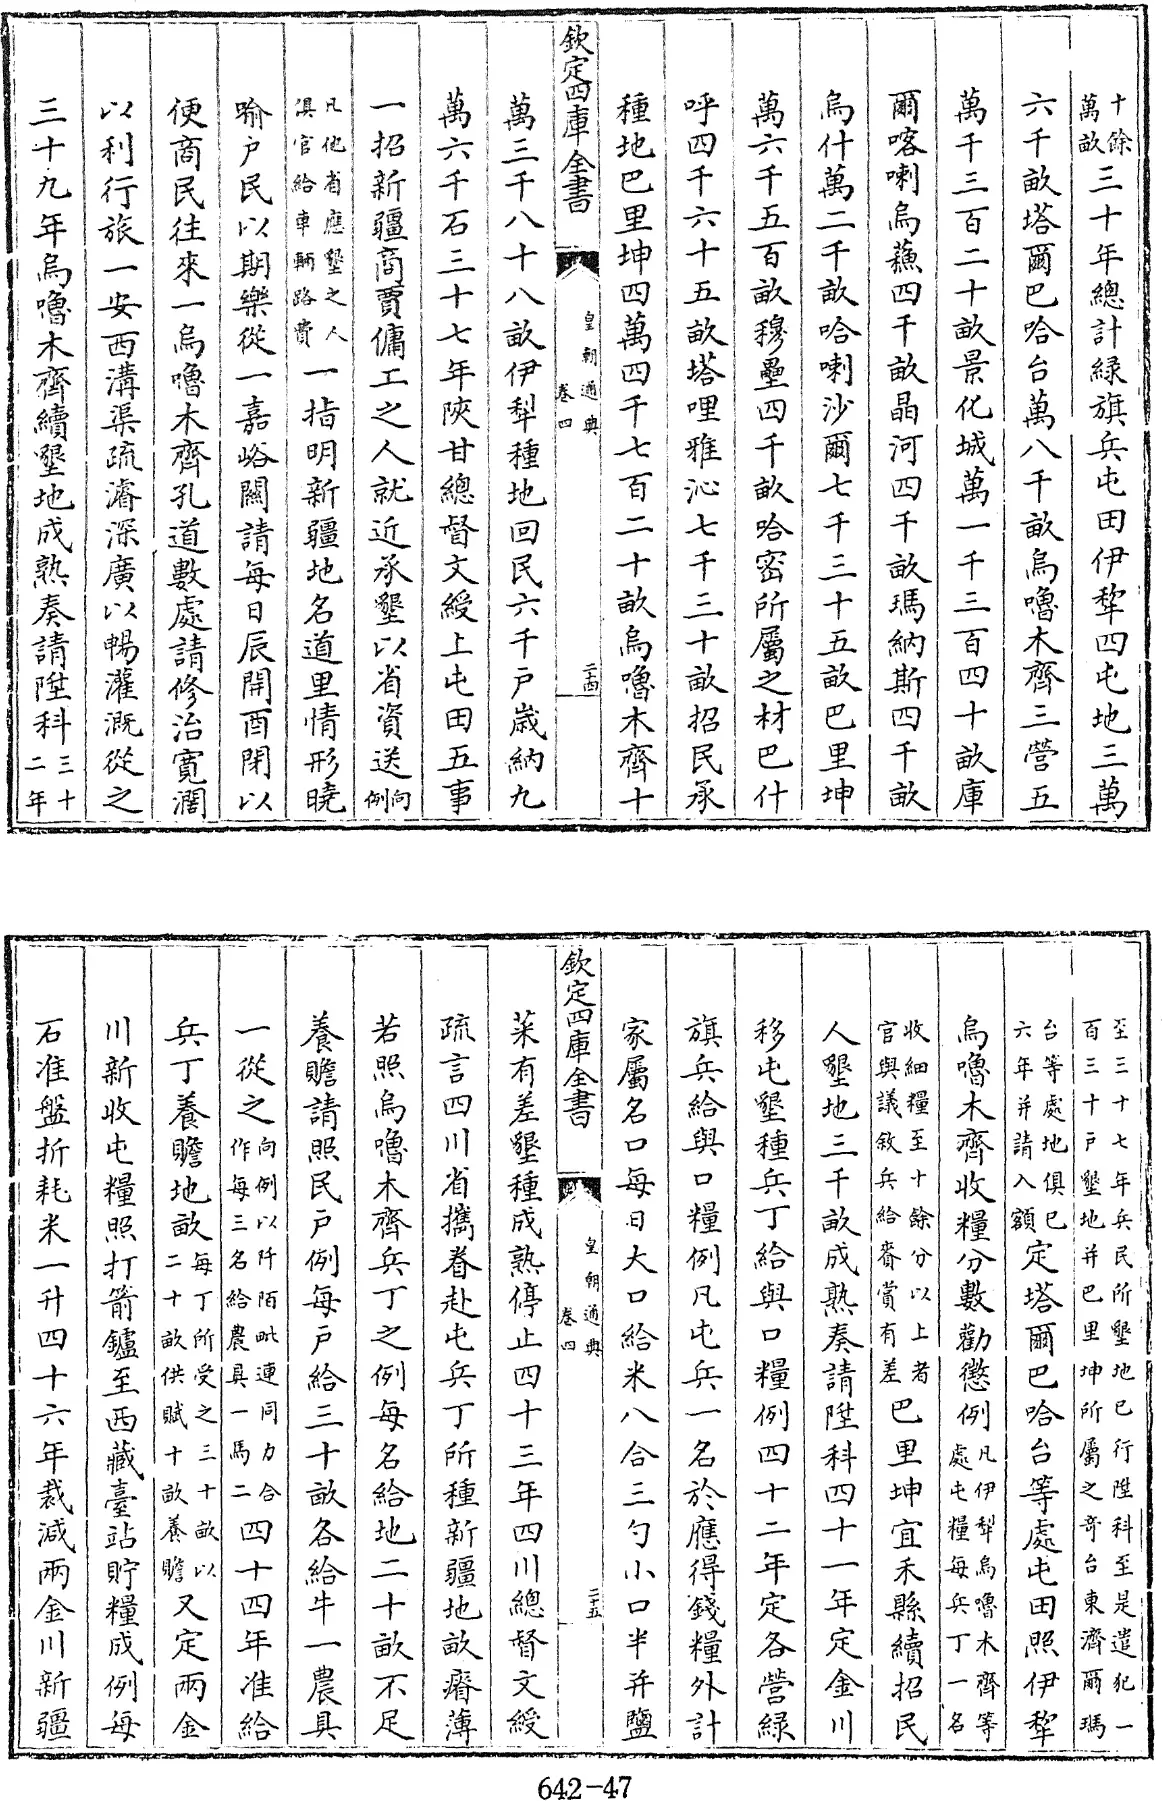 十餘萬畝三十年總計綠旗兵屯田伊犂四屯地三萬
六千畝塔爾巴哈台萬八千畝烏嚕木齊三營五
萬千三百二十畝景化城萬一千三百四十畝庫
爾喀喇烏蘓四千畝晶河四千畝瑪納斯四千畝
烏什萬二千畝哈喇沙爾七千三十五畝巴里坤
萬六千五百畝穆壘四千畝哈密所屬之材巴什
呼四千六十五畝塔哩雅沁七千三十畝招民承
種地巴里坤四萬四千七百二十畝烏嚕木齊十
欽定四庫全書 皇朝通典 卷四 二十四
萬三千八十八畝伊犂種地回民六千戸歲納九
萬六千石三十七年陜甘總督文綬上屯田五事
一招新疆商賈傭工之人就近承墾以省資送向例
凡他省應墾之人俱官給車輛路費一指明新疆地名道里情形曉
喻戸民以期樂從一嘉峪關請每日辰開酉閉以
便商民往來一烏嚕木齊孔道數處請修治寛濶
以利行旅一安西溝渠疏濬深廣以暢灌溉從之
三十九年烏嚕木齊續墾地成熟奏請陞科三十二年
至三十七年兵民所墾地已行陞科至是遣犯一百三十戸墾地并巴里坤所屬之竒台東濟爾瑪
台等處地俱已六年并請入額定塔爾巴哈台等處屯田照伊犂
烏嚕木齊收糧分數勸懲例凡伊犂烏嚕木齊等處屯糧每兵丁一名
收細糧至十餘分以上者官與議敘兵給賚賞有差巴里坤宜禾縣續招民
人墾地三千畝成熟奏請陞科四十一年定金川
移屯墾種兵丁給與口糧例四十二年定各營綠
旗兵給與口糧例凡屯兵一名於應得錢糧外計
家屬名口每日大口給米八合三勺小口半并鹽
欽定四庫全書 皇朝通典 卷四 二十五
菜有差墾種成熟停止四十三年四川總督文綬
疏言四川省攜眷赴屯兵丁所種新疆地畝瘠薄
若照烏嚕木齊兵丁之例每名給地二十畝不足
養贍請照民戸例每戸給三十畝各給牛一農具
一從之向例以阡陌毗連同力合作每三名給農具一馬二四十四年准給
兵丁養贍地畝每丁所受之三十畝以二十畝供賦十畝養贍又定兩金
川新收屯糧照打箭鑪至西藏臺站貯糧成例每
石准盤折耗米一升四十六年裁減兩金川新疆
642-47